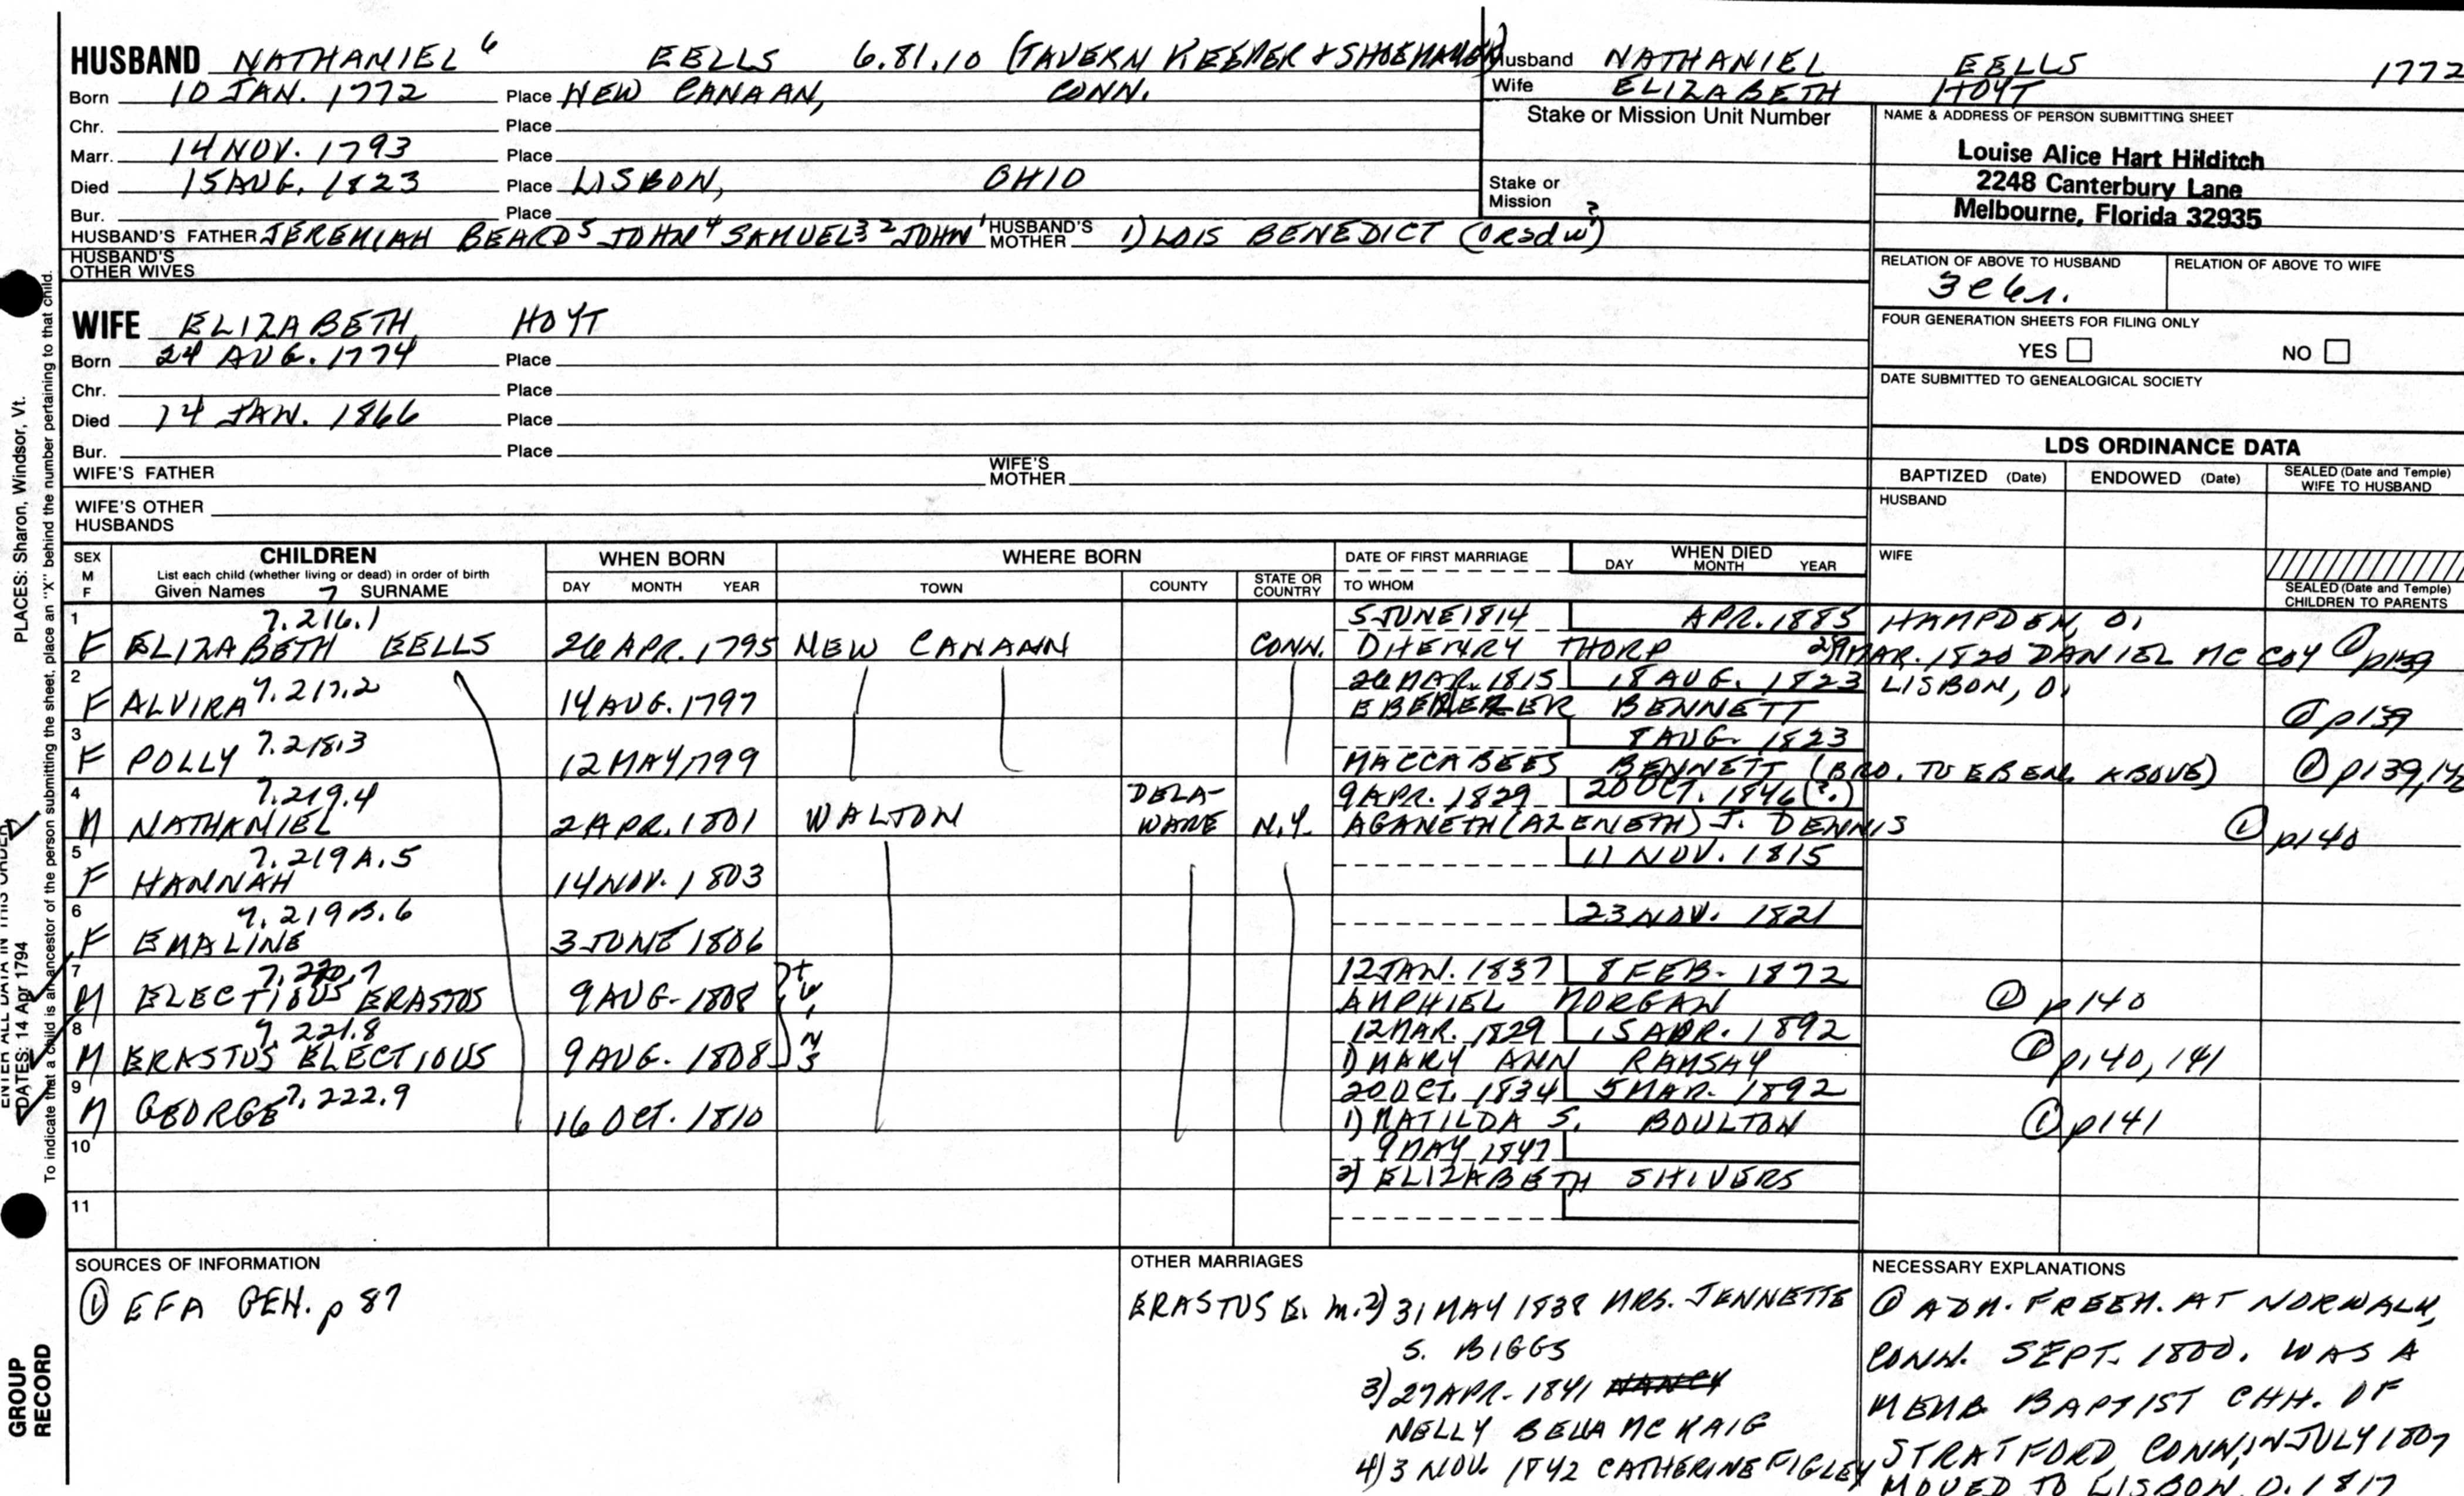 HUSBAND NATHANIEL 6 EELLS 6.81.10 (TAVERN KEEPER & SHOEMAKER)
Born 10 JAN. 1772 Place NEW CANAAN, CONN.
Chr. Place
Marr. 14 NOV. 1793 Place
Died 15 AUG. 1823 Place LISBON, OHIO
Bur. Place
HUSBAND'S FATHER JEREMIAH BEARD 5 JOHN 4 SAMUEL 3 2 JOHN 1 HUSBAND'S MOTHER 1) LOIS BENEDICT (OR 2d W ?)
HUSBAND'S OTHER WIVES
Husband NATHANIEL EELLS 1772
Wife ELIZABETH HOYT
Stake or Mission Unit Number
Stake or Mission
NAME & ADDRESS OF PERSON SUBMITTING SHEET
Louise Alice Hart Hilditch
2248 Canterbury Lane
Melbourne, Florida 32935
RELATION OF ABOVE TO HUSBAND RELATION OF ABOVE TO WIFE
3c6r.
FOUR GENERATION SHEETS FOR FILING ONLY
YES NO
DATE SUBMITTED TO GENEALOGICAL SOCIETY
WIFE ELIZABETH HOYT
Born 24 AUG. 1774 Place
Chr. Place
Died 14 JAN. 1866 Place
Bur. Place
WIFE'S FATHER WIFE'S MOTHER
WIFE'S OTHER HUSBANDS
LDS ORDINANCE DATA
BAPTIZED (Date) ENDOWED (Date) SEALED (Date and Temple) WIFE TO HUSBAND
HUSBAND
WIFE
SEALED (Date and Temple) CHILDREN TO PARENTS
SEX M F CHILDREN WHEN BORN WHERE BORN DATE OF FIRST MARRIAGE WHEN DIED
List each child (whether living or dead) in order of birth
Given Names 7 SURNAME DAY MONTH YEAR TOWN COUNTY STATE OR COUNTRY TO WHOM DAY MONTH YEAR
1 7.216.1 5 JUNE 1814 APR. 1885 HAMPDEN, O.
F ELIZABETH EELLS 26 APR. 1795 NEW CANAAN CONN. 1) HENRY THORP 2) 9 MAR. 1820 DANIEL MC COY ① p139
2 7.217.2 26 MAR. 1815 18 AUG. 1823 LISBON, O.
F ALVIRA 14 AUG. 1797 EBENEZER BENNETT ① p139
3 7.218.3 8 AUG. 1823
F POLLY 12 MAY 1799 MACCABEES BENNETT (BRO. TO EBEN. ABOVE) ① p139,
4 7.219.4 9 APR. 1829 20 OCT. 1846 (?.)
M NATHANIEL 2 APR. 1801 WALTON DELA-WARE N.Y. AGANETH (AZENETH) J. DENNIS ① p140
5 7.219A.5 11 NOV. 1815
F HANNAH 14 NOV. 1803
6 7.219B.6 23 NOV. 1821
F EMALINE 3 JUNE 1806
7 7.220.7 12 JAN. 1837 8 FEB. 1872
M ELECTIOUS ERASTUS 9 AUG. 1808 TWINS AMPHIEL MORGAN ① p140
8 7.221.8 12 MAR. 1829 15 APR. 1892
M ERASTUS ELECTIOUS 9 AUG. 1808 1) MARY ANN RAMSAY ① p140, 141
9 7.222.9 20 OCT. 1834 5 MAR. 1892
M GEORGE 16 OCT. 1810 1) MATILDA S. BOULTON ① p141
10 9 MAY 1847
2) ELIZABETH SHIVERS
11
SOURCES OF INFORMATION
① EFA GEN. p 87
OTHER MARRIAGES
ERASTUS E. m. 2) 31 MAY 1838 MRS. JENNETTE
S. BIGGS
3) 27 APR. 1841 NANCY
NELLY BELLA MC KAIG
4) 3 NOV. 1842 CATHERINE FIGLEY
NECESSARY EXPLANATIONS
① ADM. FREEM. AT NORWALK,
CONN. SEPT. 1800. WAS A
MEMB. BAPTIST CHH. OF
STRATFORD, CONN, IN JULY 1807
MOVED TO LISBON, O. 1817
PLACES: Sharon, Windsor, Vt.
ENTER ALL DATA IN THIS ORDER
DATES: 14 Apr 1794
To indicate that a child is an ancestor of the person submitting the sheet, place an "X" behind the number pertaining to that child.
GROUP RECORD